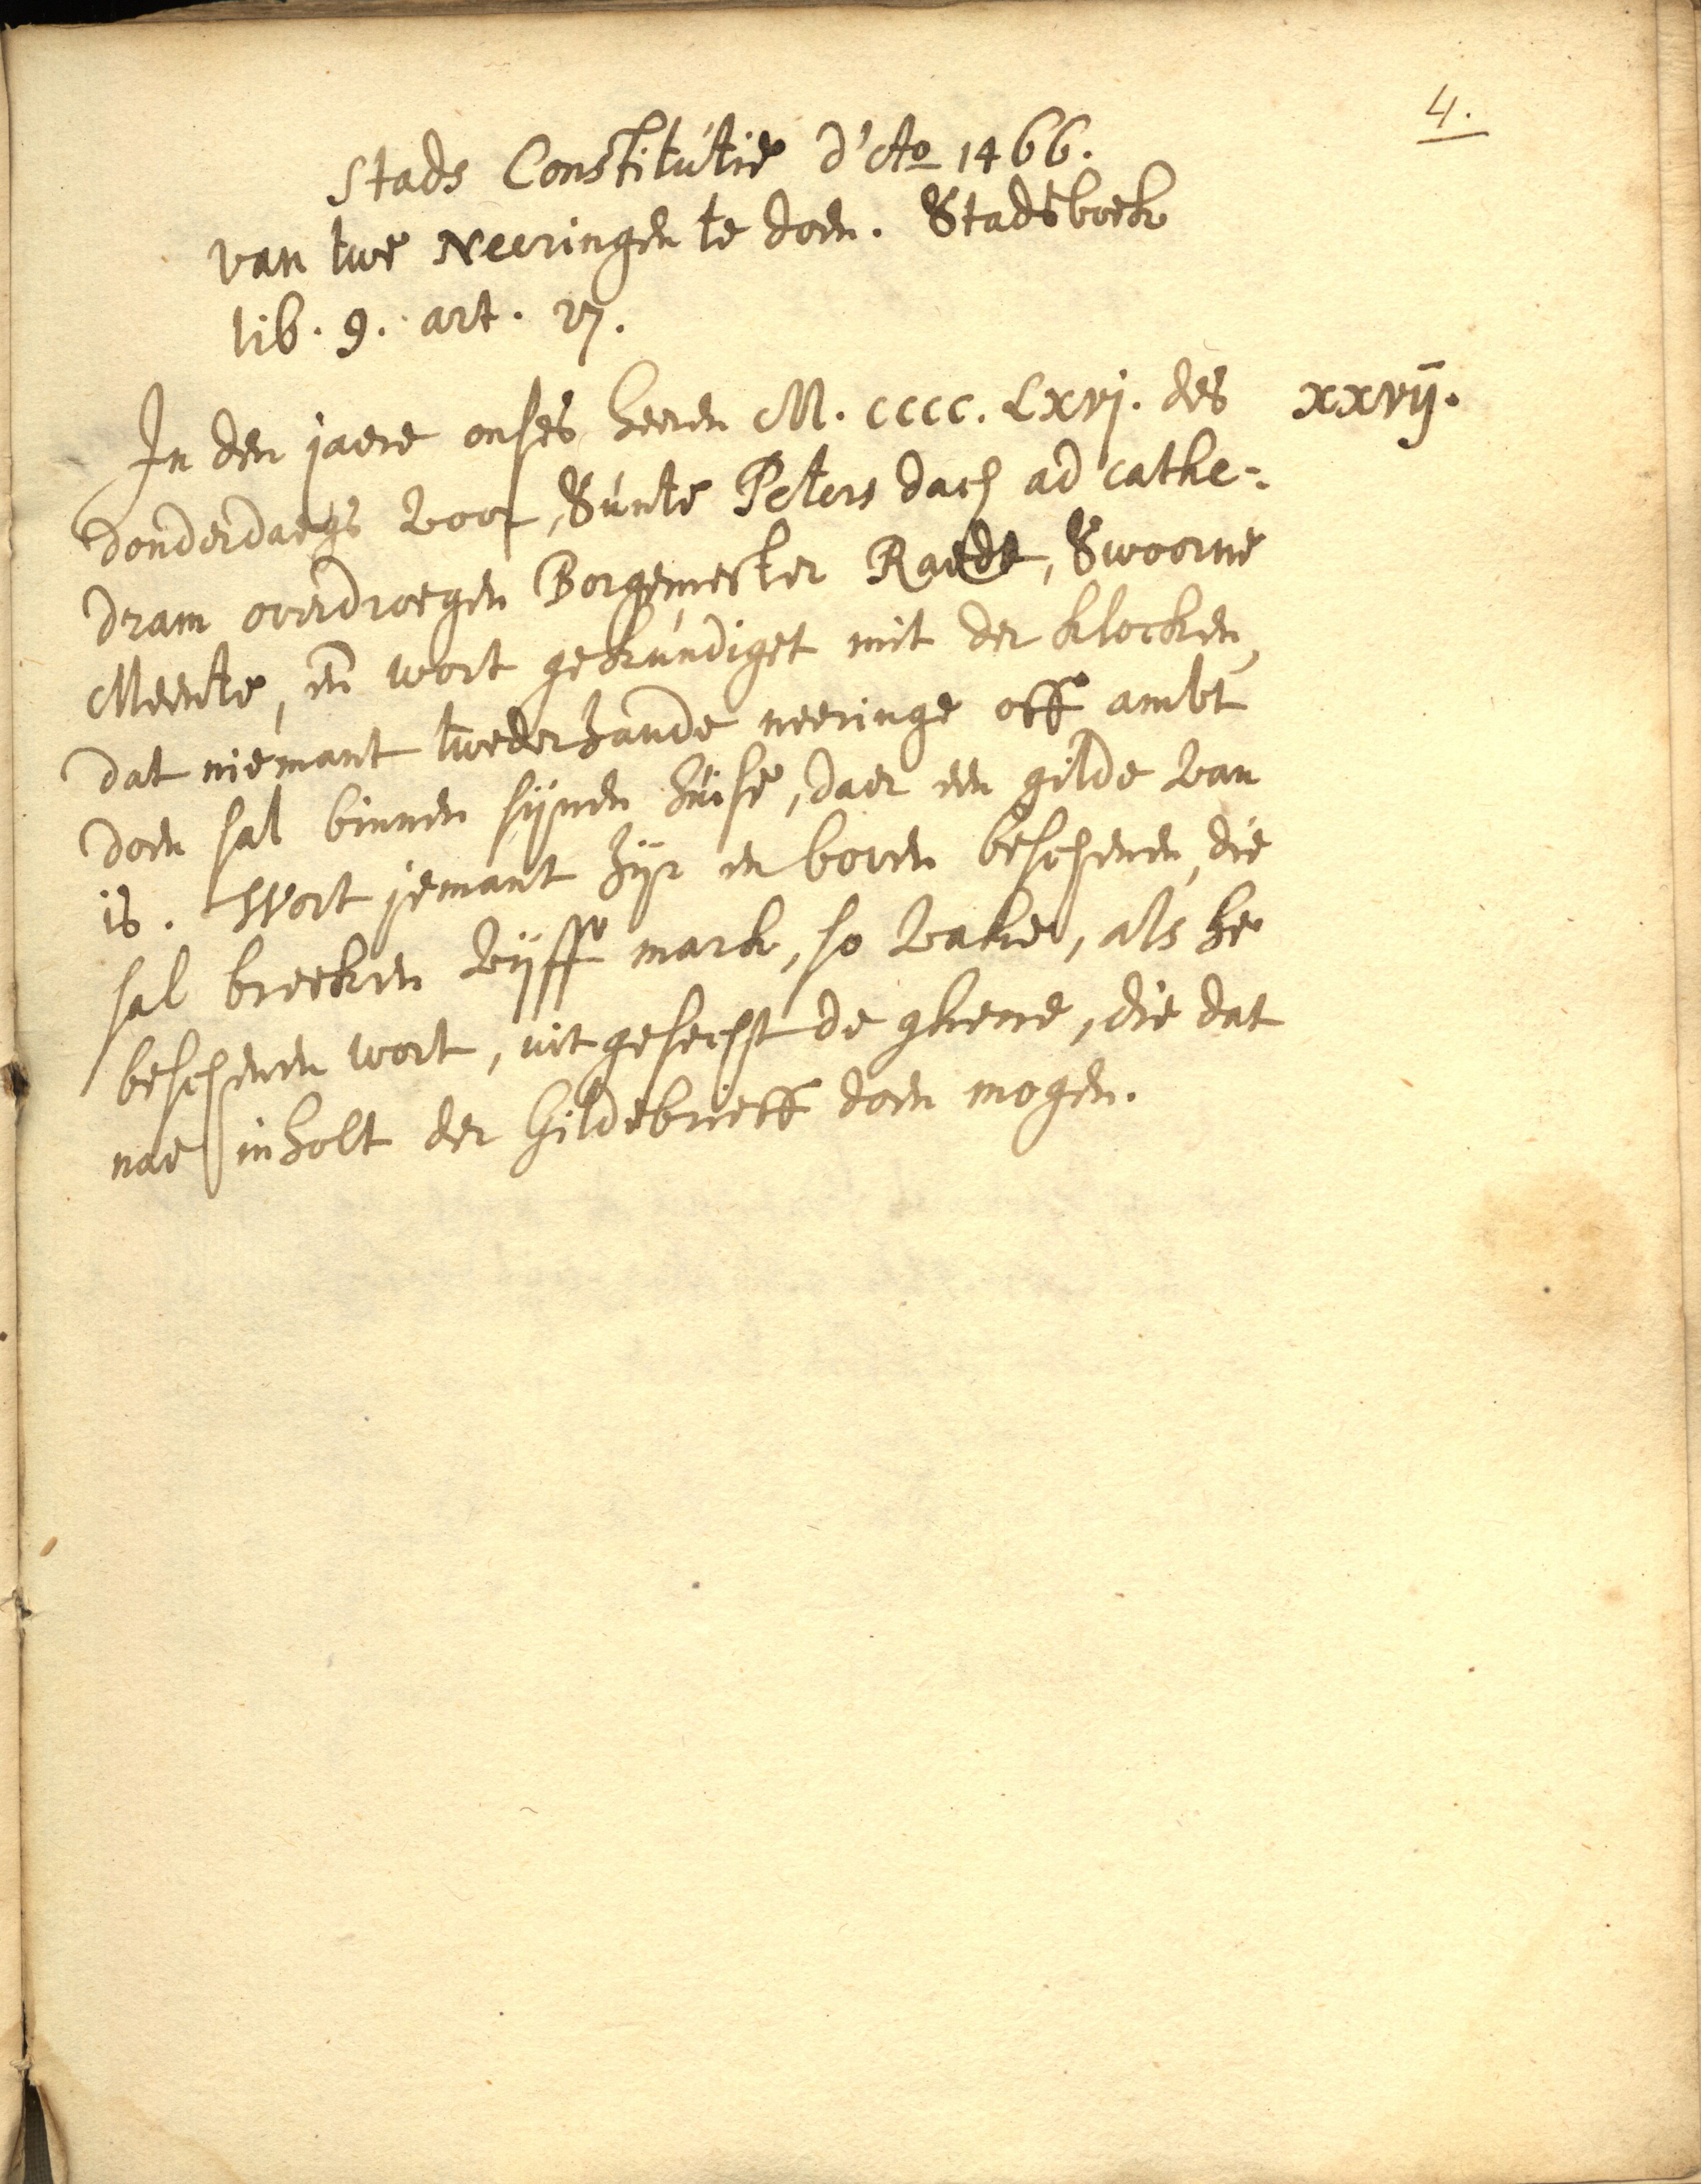 4.
Stads Constitútie d'Ao 1466.
van twe Neeringen te doen. Stadsboek
lib. 9. art. 27.
In den jaere onses heeren M. cccc. Lxvj. des xxvij.
donderdaegs voor Súnte Peters dach ad cathe-
dram overdroegen Borgemester Raedt, Swoorne
Meente, en̄ wort gekúndiget mit der klocken,
dat niemant twederhande neeringe off ambt
doen sal binnen sijnen húise, daer een gilde van
is. Wort jemant hijr en boven beschenen, die
sal breeken vijff mark, so vake, als he
beschenen wort, uitgesechst de ghene, die dat
nae inholt der Gildebrieff doen mogen.